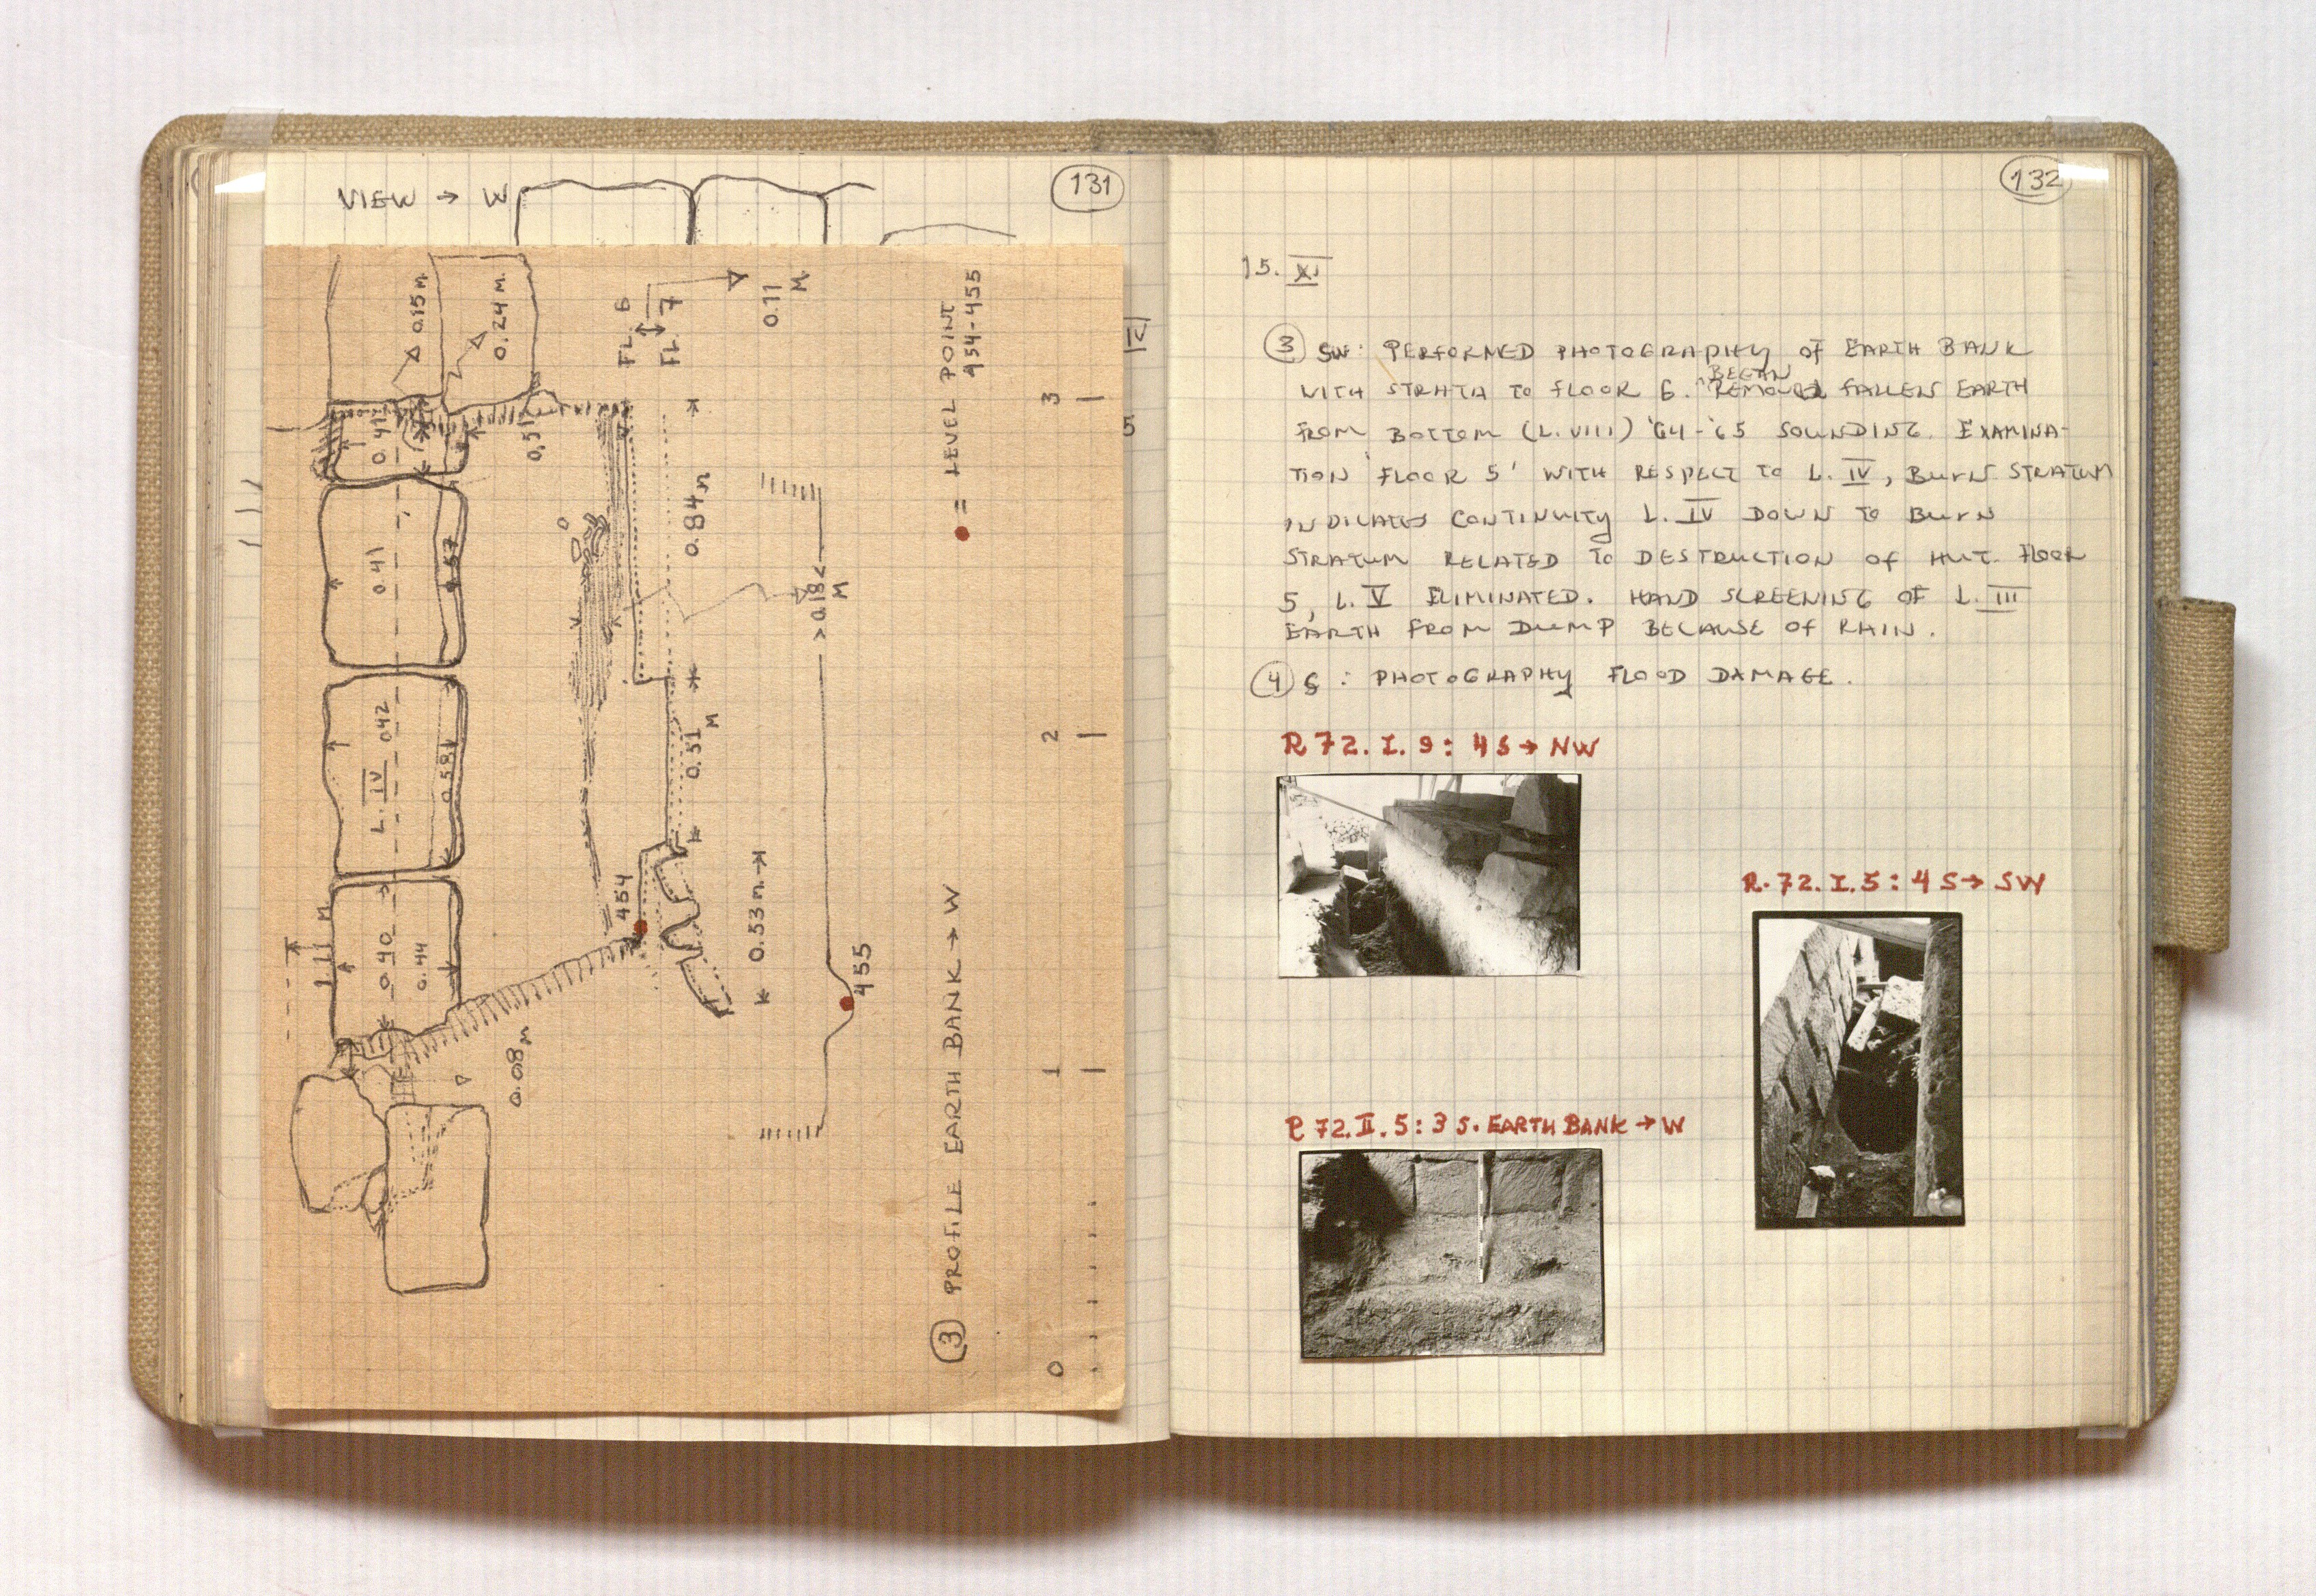 VIEW → W
131
0.15 M
0.24 M.
FL. 6
FL. 7
0.11
M
LEVEL POINT
454-455
● =
3
0.41
0,51
0.84 M
0.41
0.57
>0.18<
M
L. IV 042
0.58
0.51
M
2
454
0.53 M
455
1.11 M
0.40
0.44
0.08 M
1
③ PROFILE EARTH BANK → W
0
5
132
15. XI
③ SW: PERFORMED PHOTOGRAPHY OF EARTH BANK
WITH STRATA TO FLOOR 6. BEGAN REMOVAL FALLEN EARTH
FROM BOTTOM (L. VIII) '64-'65 SOUNDING. EXAMINA-
TION 'FLOOR 5' WITH RESPECT TO L. IV, BURN STRATUM
INDICATES CONTINUITY L. IV DOWN TO BURN
STRATUM RELATED TO DESTRUCTION OF HUT. FLOOR
5, L. V ELIMINATED. HAND SCREENING OF L. III
EARTH FROM DUMP BECAUSE OF RAIN.
④ S: PHOTOGRAPHY FLOOD DAMAGE.
R 72. I. 9: 4 S → NW
R. 72. I. 5: 4 S → SW
R 72. II. 5: 3 S. EARTH BANK → W